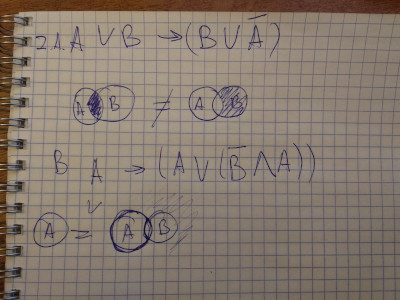 2.1. A ∨ B → (B ∪ A̅)
A B ≠ A B
B A → (A ∨ (B̅ ∧ A))
A = A B